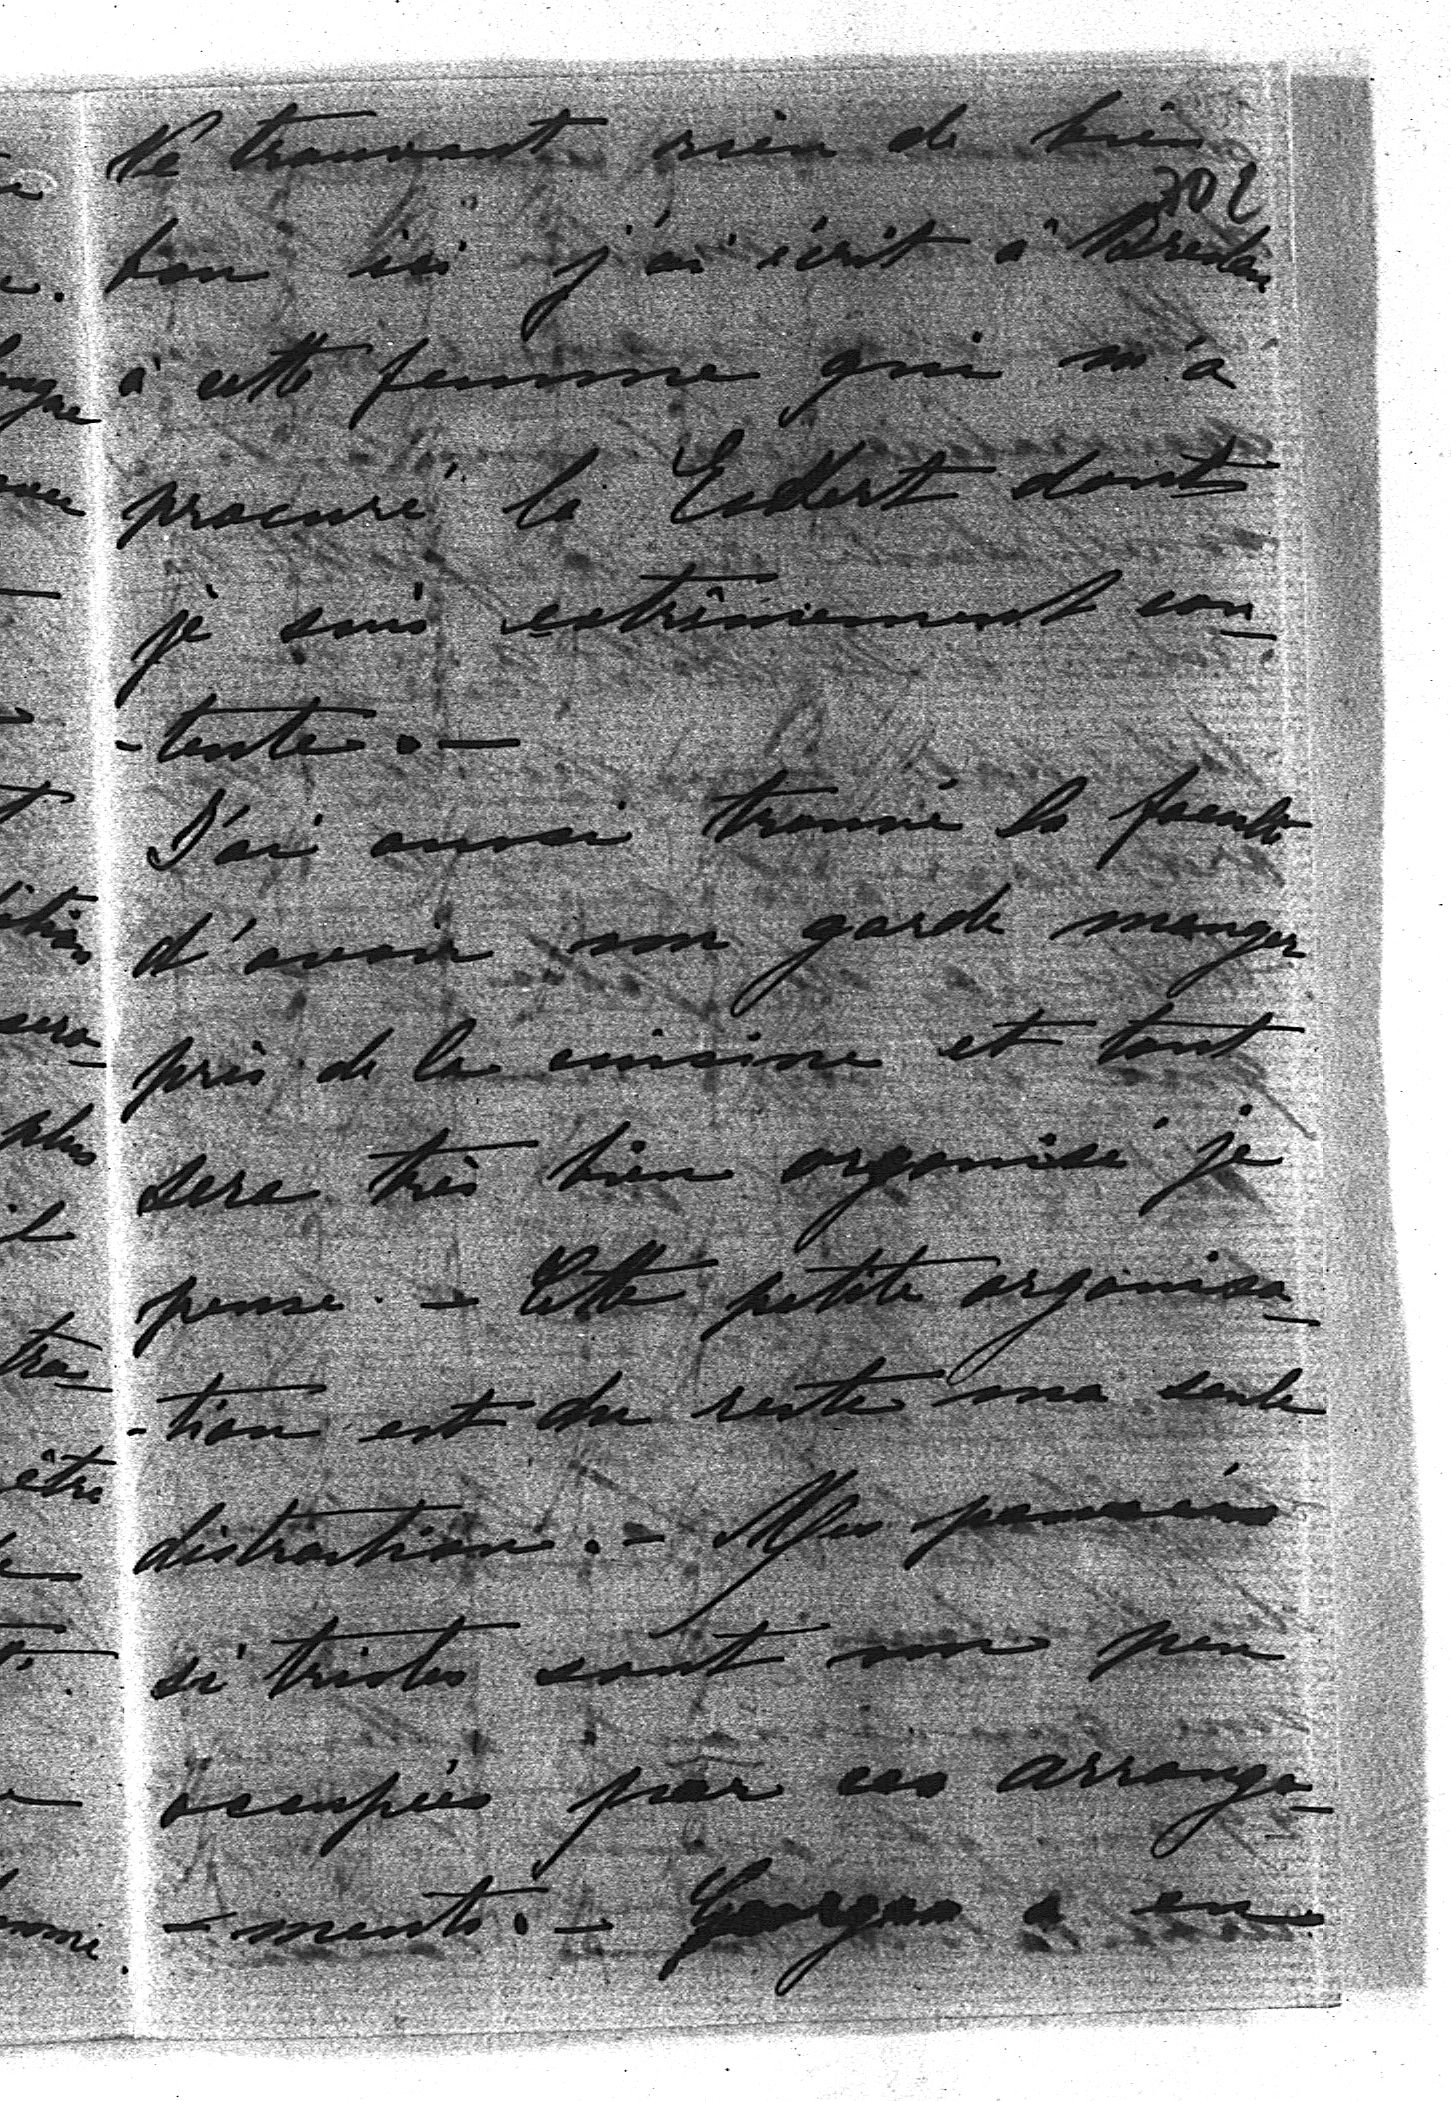 Ne trouvant rien de bien
302
bon ici j'ai écrit à Breslau
à cette femme qui m'a
procuré la dont
je suis extrêmement con-
-tente. -
J'ai aussi trouvé la faculté
d'avoir son garde manger
près de la cuisine et tout
sera très bien organisé je
pense. - Cette petite organisa-
-tion est du reste ma seule
distraction. - Mes pensées
si tristes sont un peu
occupées par ces arrange-
-ments. - Georges a eu